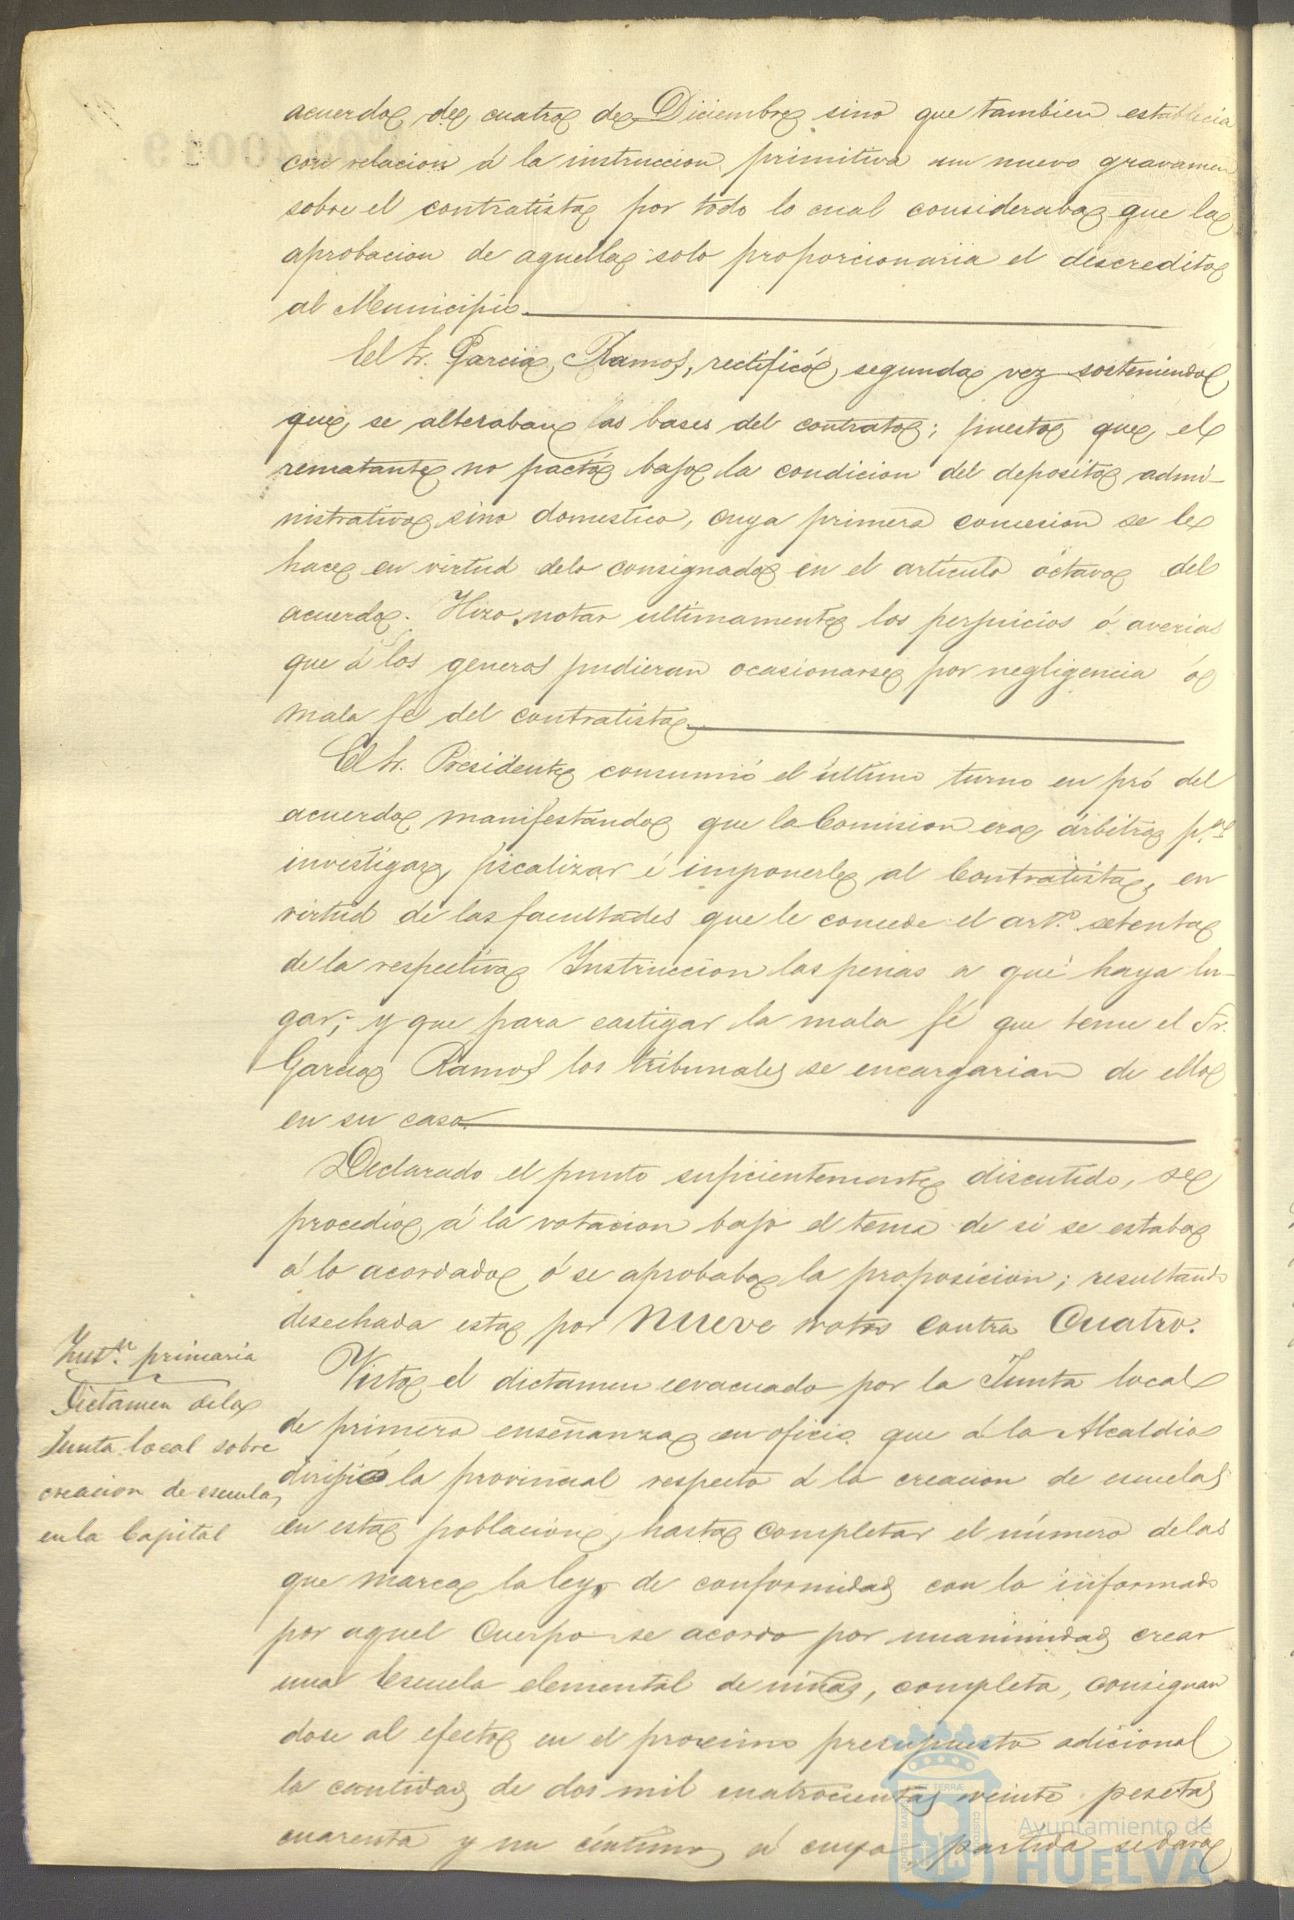 acuerdo de cuatro de Diciembre sino que tambien establecia
con relacion á la instruccion primitiva un nuevo gravamen
sobre el contratista por todo lo cual consideraba que la
aprobacion de aquella solo proporcionaria el descredito
al Municipio.
El Sr. Garcia Ramos, rectificó segunda vez sosteniendo
que se alteraban las bases del contrato; puesto que el
rematante no pactó bajo la condicion del deposito admi-
nistrativo sino domestico, cuya primera concesion se le
hace en virtud delo consignado en el articulo octavo del
acuerdo. Hizo notar ultimamente los perjuicios ó averias
que á los generos pudieran ocasionarse por negligencia ó
mala fé del contratista.
El Sr. Presidente consumió el último turno en pró del
acuerdo manifestando que la Comision era árbitra pª
investigar, fiscalizar é imponerle al Contratista, en
virtud de las facultades que le concede el artº setenta
de la respectiva Instruccion las penas a que haya lu-
gar; y que para castigar la mala fé que teme el Sr.
Garcia Ramos los tribunales se encargarian de ello
en su caso.
Declarado el punto suficientemente discutido, se
procedió á la votacion bajo el tema de si se estaba
á lo acordado ó se aprobaba la proposicion; resultando
desechada esta por nueve votos contra Cuatro.
Instºn primaria
Dictamen dela
Junta local sobre
creacion de escuelas
en la Capital
Visto el dictamen evacuado por la Junta local
de primera enseñanza en oficio que á la Alcaldia
dirigió la provincial respecto á la creacion de escuelas
en esta poblacion, hasta completar el número delas
que marca la ley, de conformidad con lo informado
por aquel Cuerpo se acordo por unanimidad crear
una Escuela elemental de niñas, completa, consignan
dose al efecto en el proximo presupuesto adicional
la cantidad de dos mil cuatrocientas veinte pesetas
cuarenta y un céntimos á cuya partida se dara
Ayuntamiento de
HUELVA